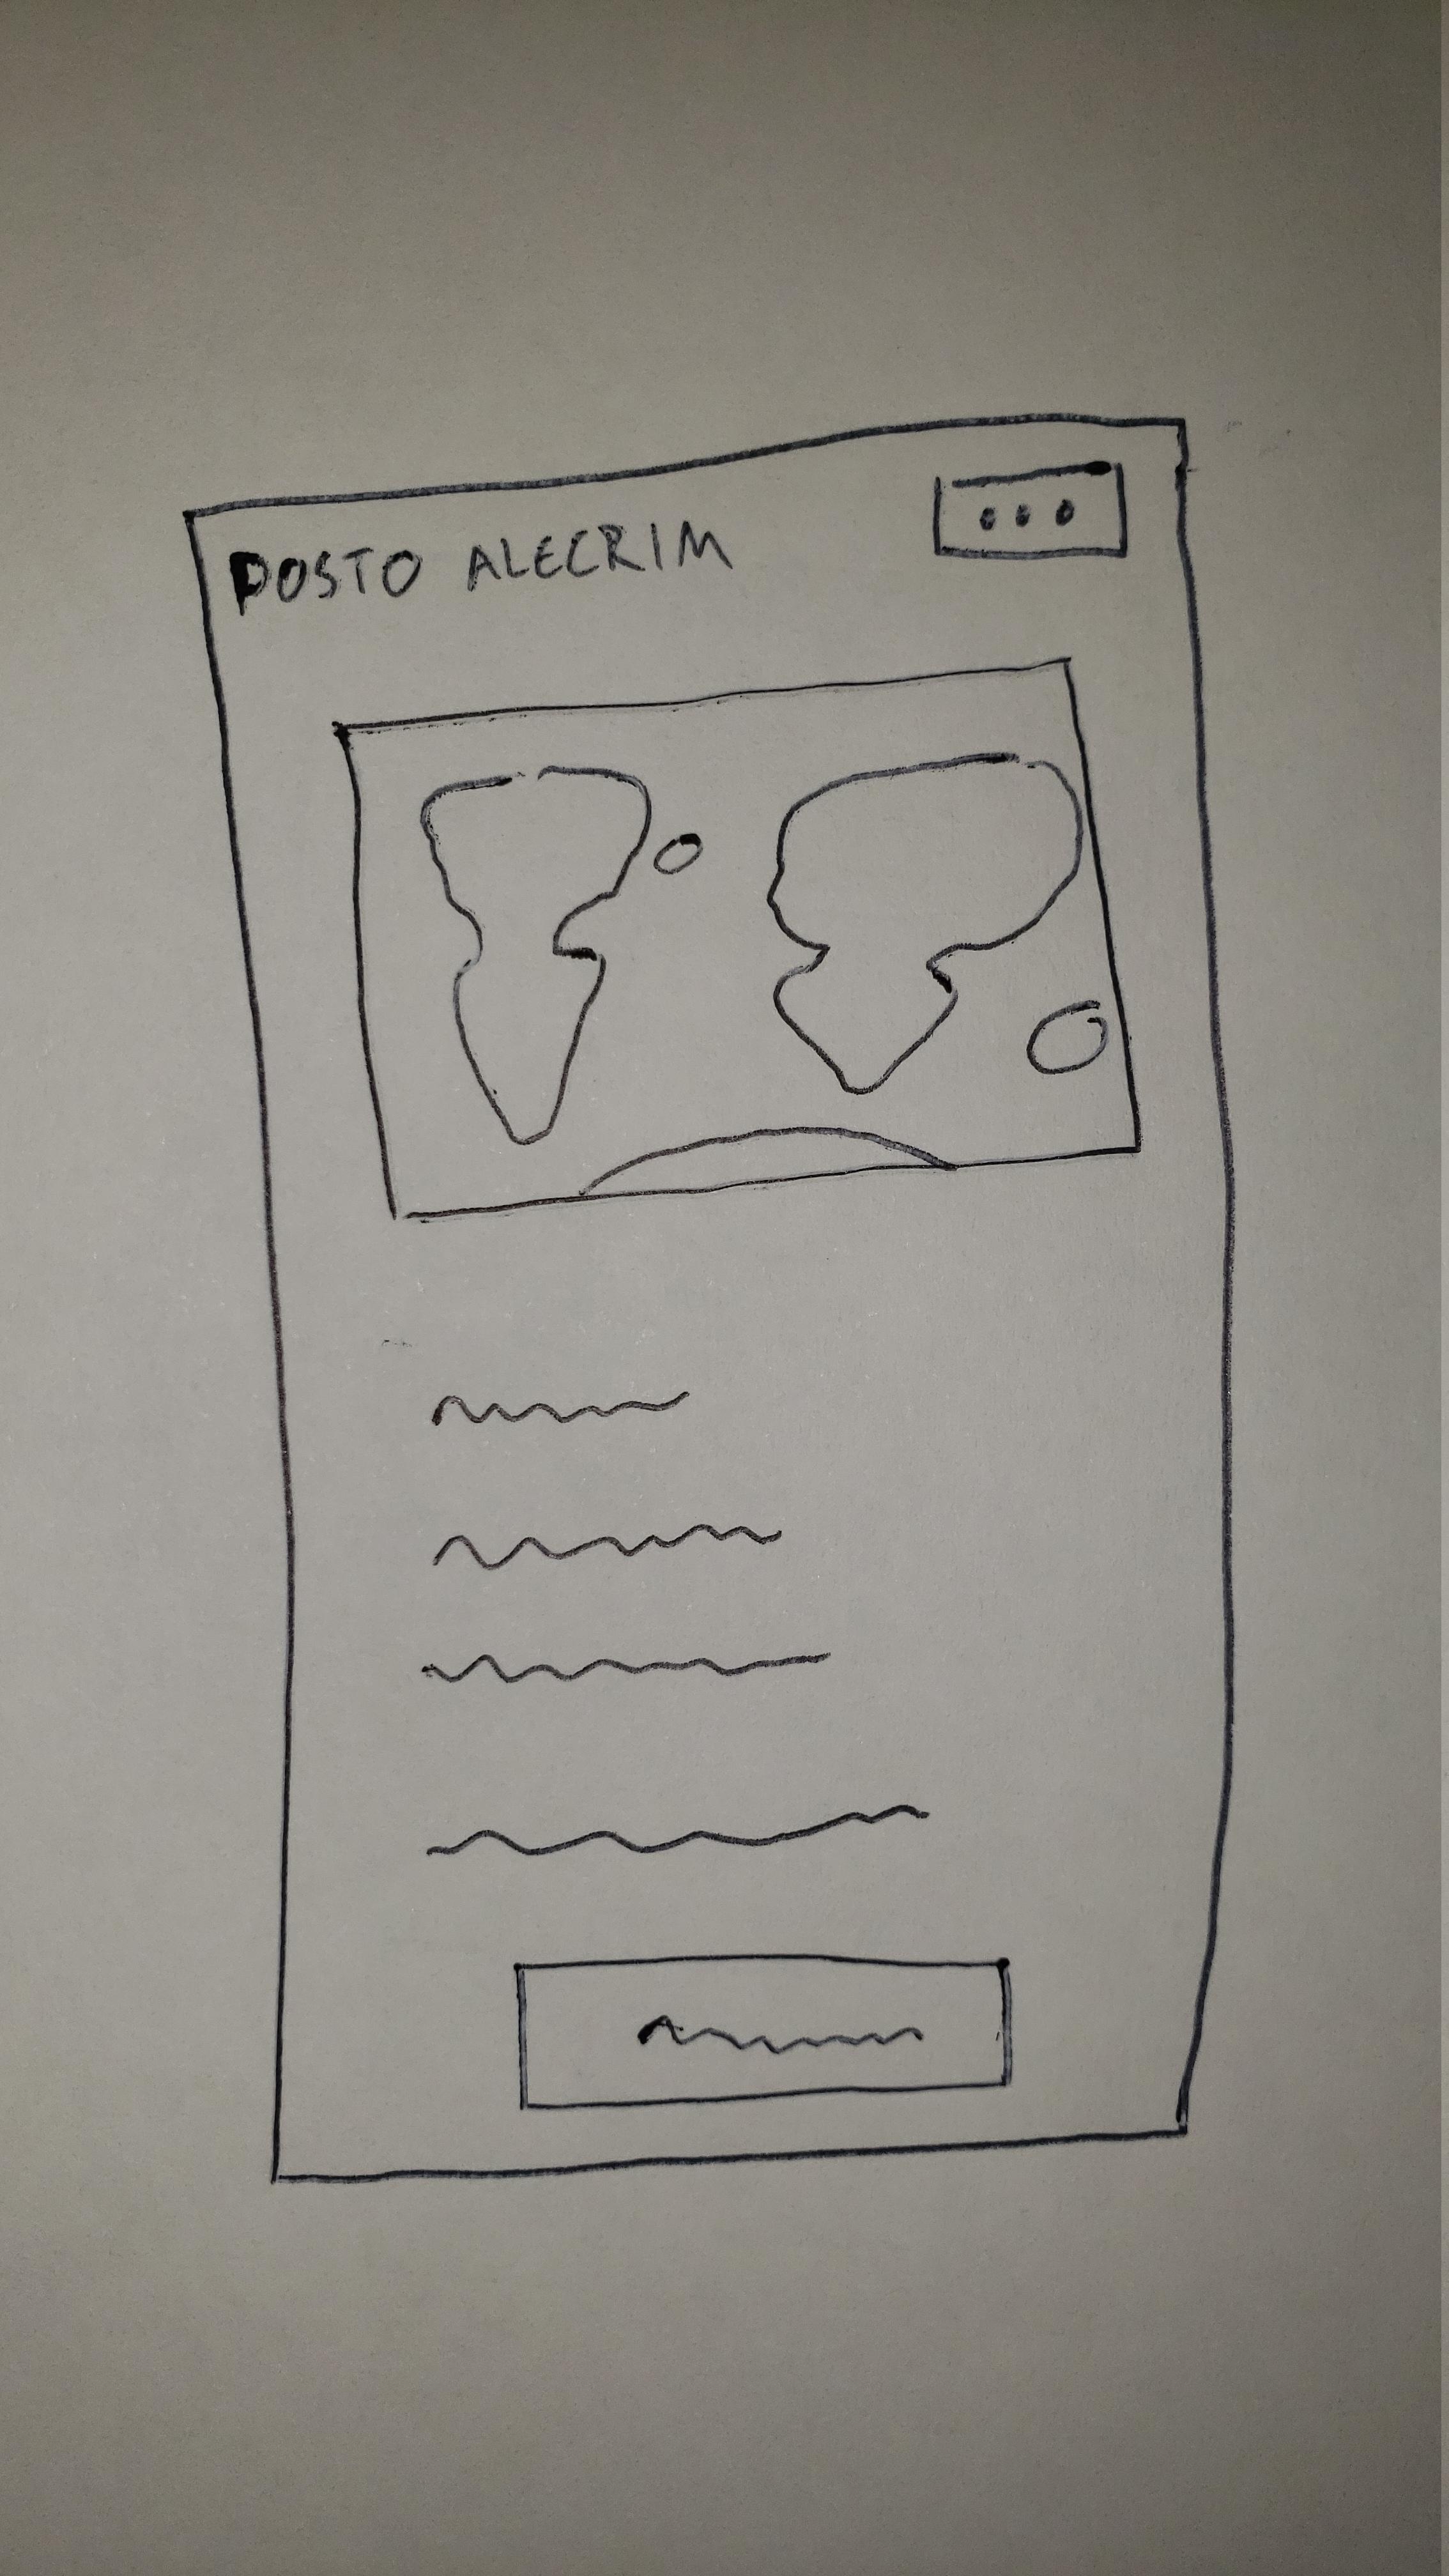 POSTO ALECRIM